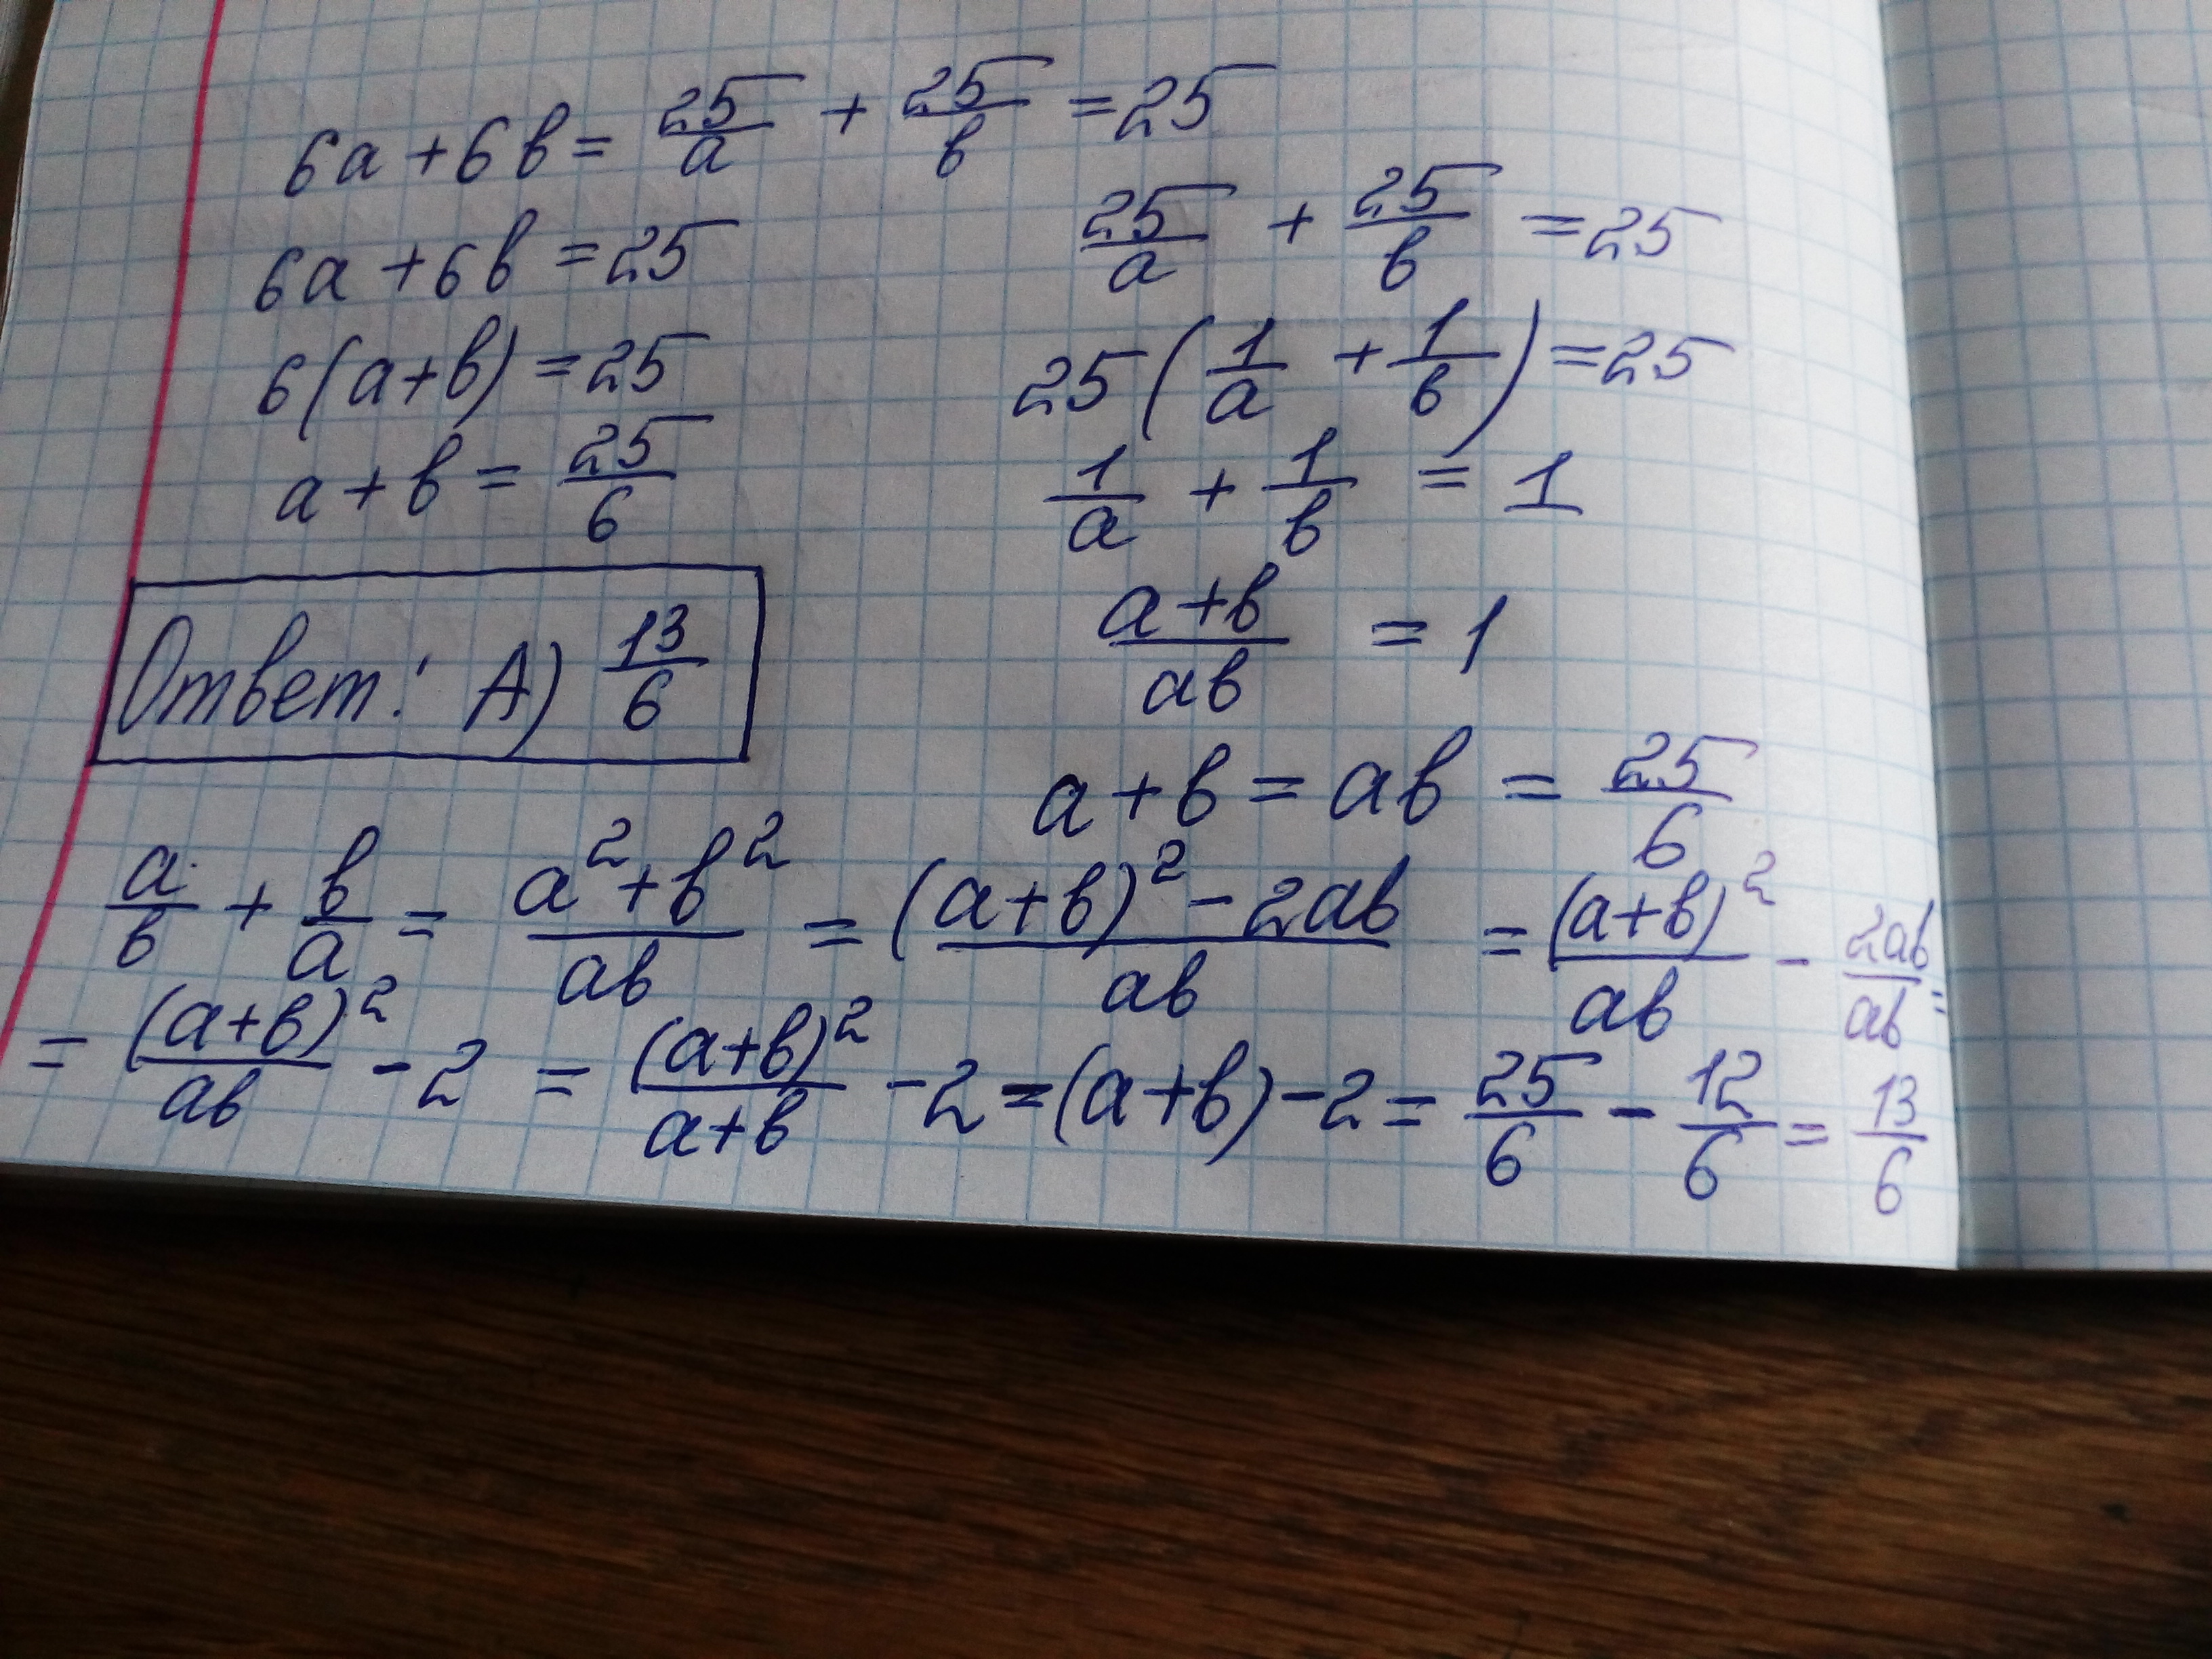 6a + 6b = 25/a + 25/b = 25
6a + 6b = 25
6(a+b) = 25
a + b = 25/6
Ответ: А) 13/6
25/a + 25/b = 25
25(1/a + 1/b) = 25
1/a + 1/b = 1
a+b/ab = 1
a + b = ab = 25/6
a/b + b/a = a²+b²/ab = (a+b)²-2ab/ab = (a+b)²/ab - 2ab/ab =
= (a+b)²/ab - 2 = (a+b)²/a+b - 2 = (a+b) - 2 = 25/6 - 12/6 = 13/6